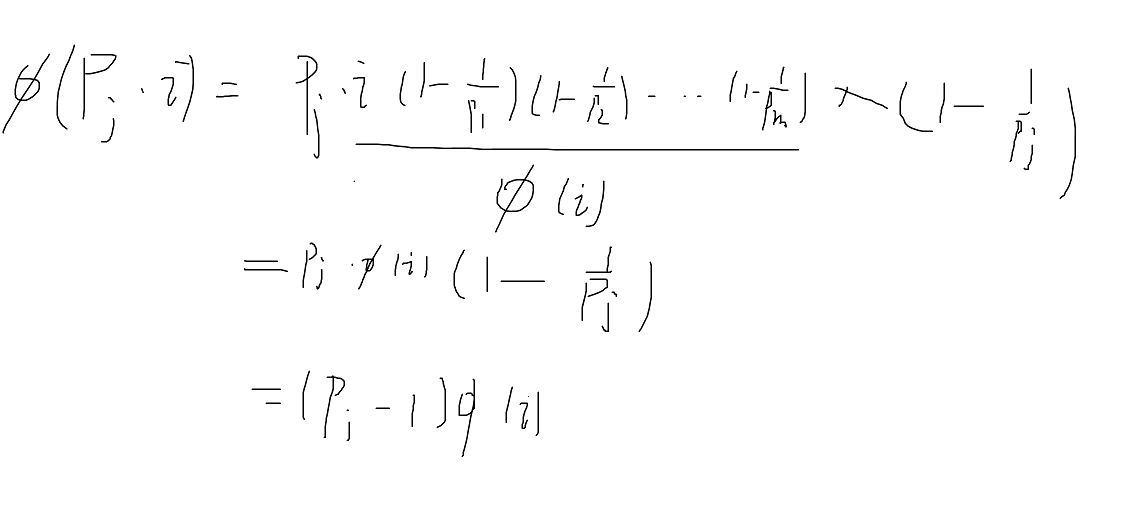 φ(P_j · i) = P_j · i (1 - 1/P_1)(1 - 1/P_2) · · · (1 - 1/P_m) × (1 - 1/P_j)
φ(i)
= P_j · φ(i) (1 - 1/P_j)
= (P_j - 1) φ(i)